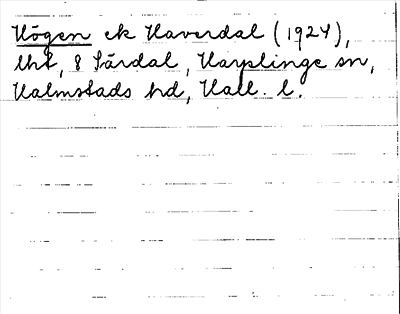 Högen ek Haverdal (1924),
lht, 8 Särdal, Harplinge sn,
Halmstads hd, Hall. l.